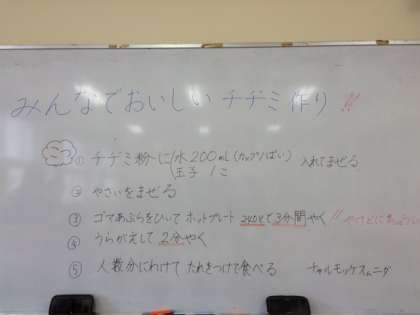 みんなでおいしいチヂミ作り!!
① チヂミ粉に 水200mL(カップ1ぱい) 入れてまぜる
玉子 1こ
② やさいをまぜる
③ ゴマあぶらをひいて ホットプレート 240℃で3分間やく!! やけどにちゅうい
④ うらがえして 2分やく
⑤ 人数分にわけて たれをつけて食べる チャルモッケスムニダ